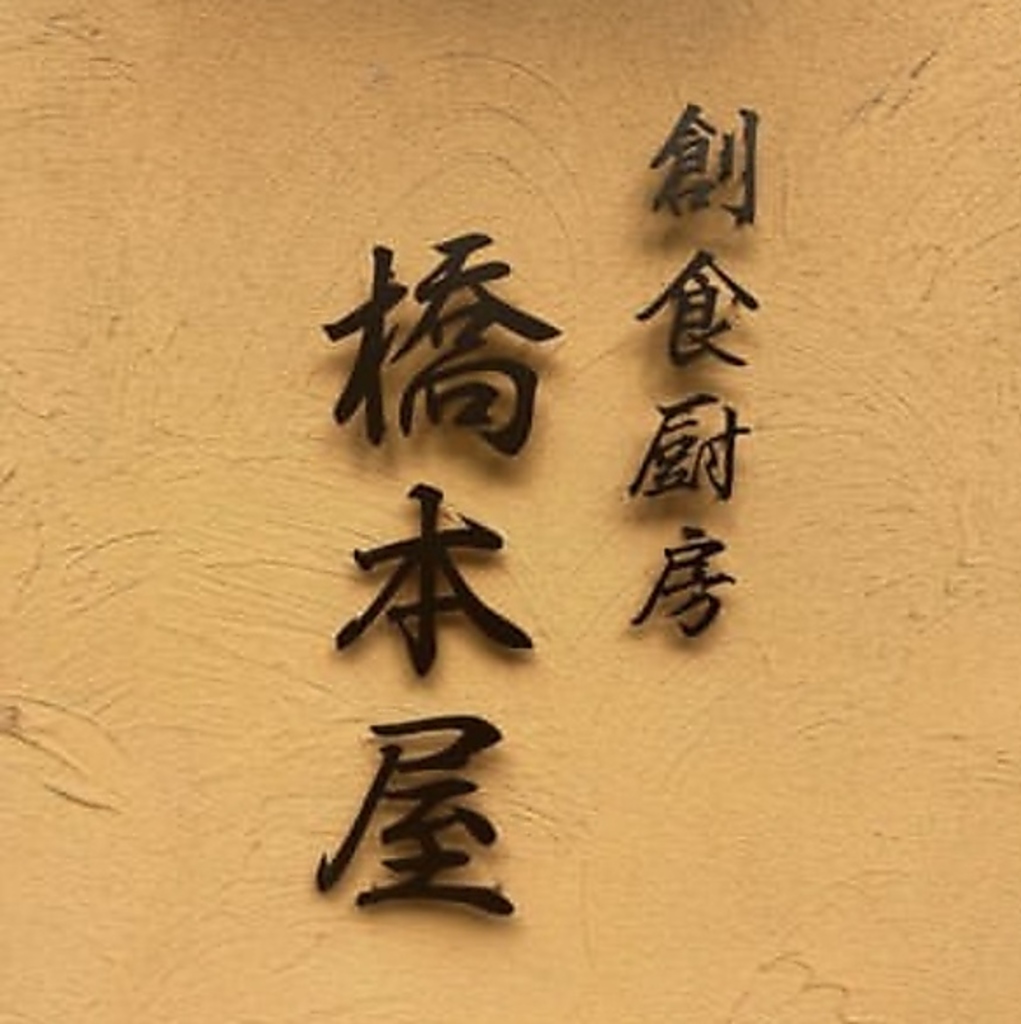 創食厨房
橋本屋